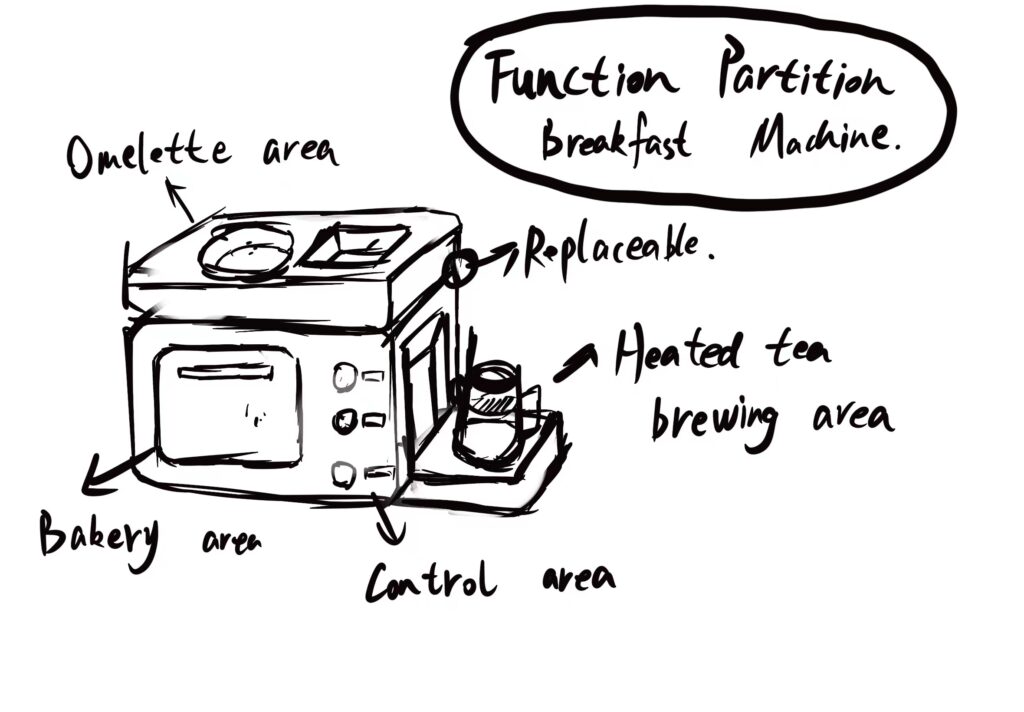 Function Partition
breakfast Machine.
Omelette area
Replaceable.
Heated tea
brewing area
Bakery area
Control area